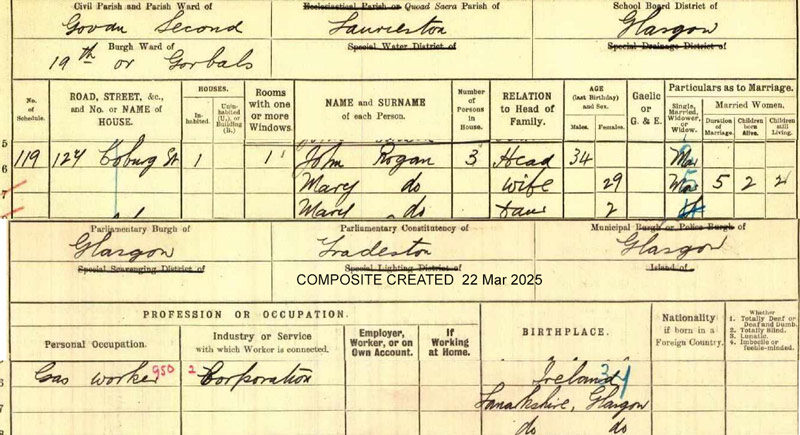 Civil Parish and Parish Ward of
Ecclesiastical Parish or Quoad Sacra Parish of
School Board District of
Govan Second
Laurieston
Glasgow
Burgh Ward of
Special Water District of
Special Drainage District of
19th or Gorbals
No. of Schedule.
ROAD, STREET, &c., and No. or NAME of HOUSE.
HOUSES.
Inhabited.
Uninhabited (U.), or Building (B.).
Rooms with one or more Windows.
NAME and SURNAME of each Person.
Number of Persons in House.
RELATION to Head of Family.
AGE (last Birthday) and Sex.
Males.
Females.
Gaelic or G. & E.
Particulars as to Marriage.
Single, Married, Widower, or Widow.
Married Women.
Duration of Marriage.
Children born Alive.
Children still Living.
5
6 119 124 Coburg St 1 1 John Rogan 3 Head 34 Mar
7 Mary do wife 29 Mar 5 2 2
Mary do Daur 2
Parliamentary Burgh of
Parliamentary Constituency of
Municipal Burgh or Police Burgh of
Glasgow
Tradeston
Glasgow
Special Scavenging District of
Special Lighting District of
Island of
COMPOSITE CREATED 22 Mar 2025
PROFESSION OR OCCUPATION.
Personal Occupation.
Industry or Service with which Worker is connected.
Employer, Worker, or on Own Account.
If Working at Home.
BIRTHPLACE.
Nationality if born in a Foreign Country.
Whether
1. Totally Deaf or Deaf and Dumb.
2. Totally Blind.
3. Lunatic.
4. Imbecile or feeble-minded.
6 Gas worker 950 2 Corporation Ireland 34
7 Lanarkshire, Glasgow
8 do do